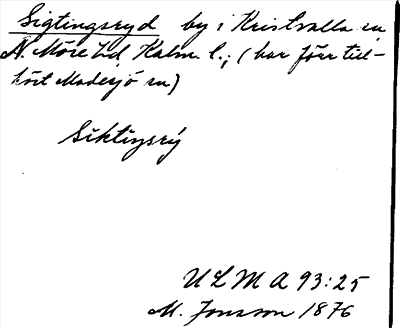 Sigtingsryd by i Kristvalla sn,
N. Möre hd, Kalm. l.; (har förr till-
hört Madesjö sn)
Siktingsrý
ULMA 93:25
M. Jonsson 1876